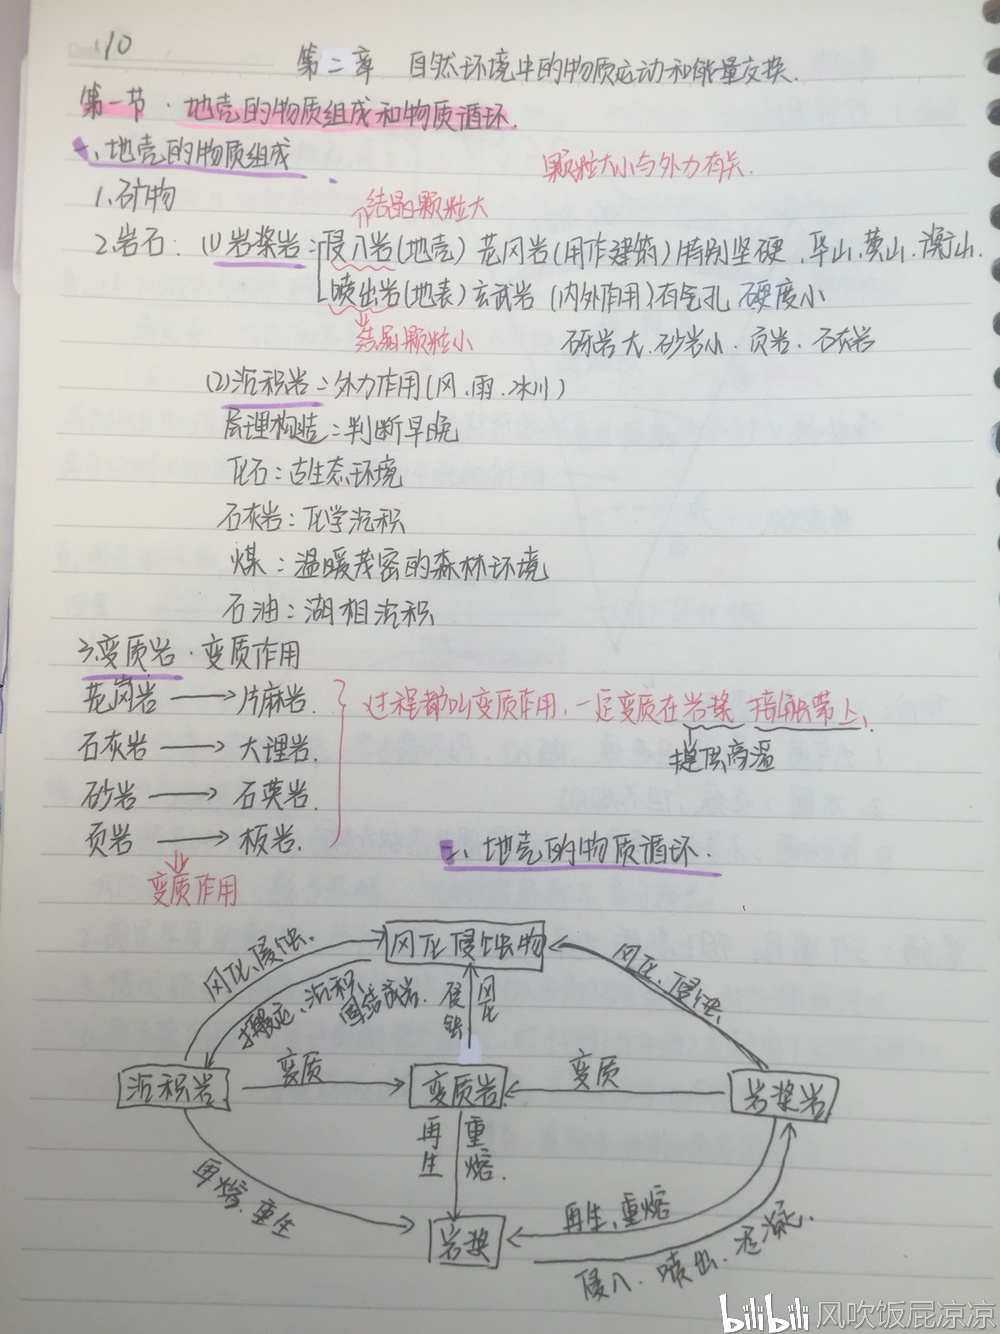 10
第二章 自然环境中的物质运动和能量交换.
第一节·地壳的物质组成和物质循环.
一、地壳的物质组成
颗粒大小与外力有关.
1.矿物
结晶颗粒大
2.岩石: (1)岩浆岩:侵入岩(地壳) 花冈岩(用作建筑)特别坚硬.华山.黄山.衡山.
喷出岩(地表)玄武岩 (内外作用)有气孔 硬度小
结晶颗粒小
砾岩大.砂岩小.页岩.石灰岩
(2)沉积岩:外力作用(风.雨.冰川)
层理构造:判断早晚
化石:古生态环境
石灰岩:化学沉积
煤:温暖茂密的森林环境
石油:湖相沉积
3.变质岩·变质作用
花岗岩→片麻岩.
过程都叫变质作用,一定变质在岩浆接触带上.
石灰岩→大理岩.
提供高温
砂岩→石英岩.
页岩→板岩.
二、地壳的物质循环.
变质作用
风化侵蚀物
风化、侵蚀.
搬运、沉积、固结成岩.
侵蚀 风化
风化、侵蚀.
沉积岩
变质
变质岩
变质
岩浆岩
再生 重熔.
再熔.重生
岩浆
再生、重熔
侵入.喷出.冷凝.
bilibili 风吹饭屁凉凉